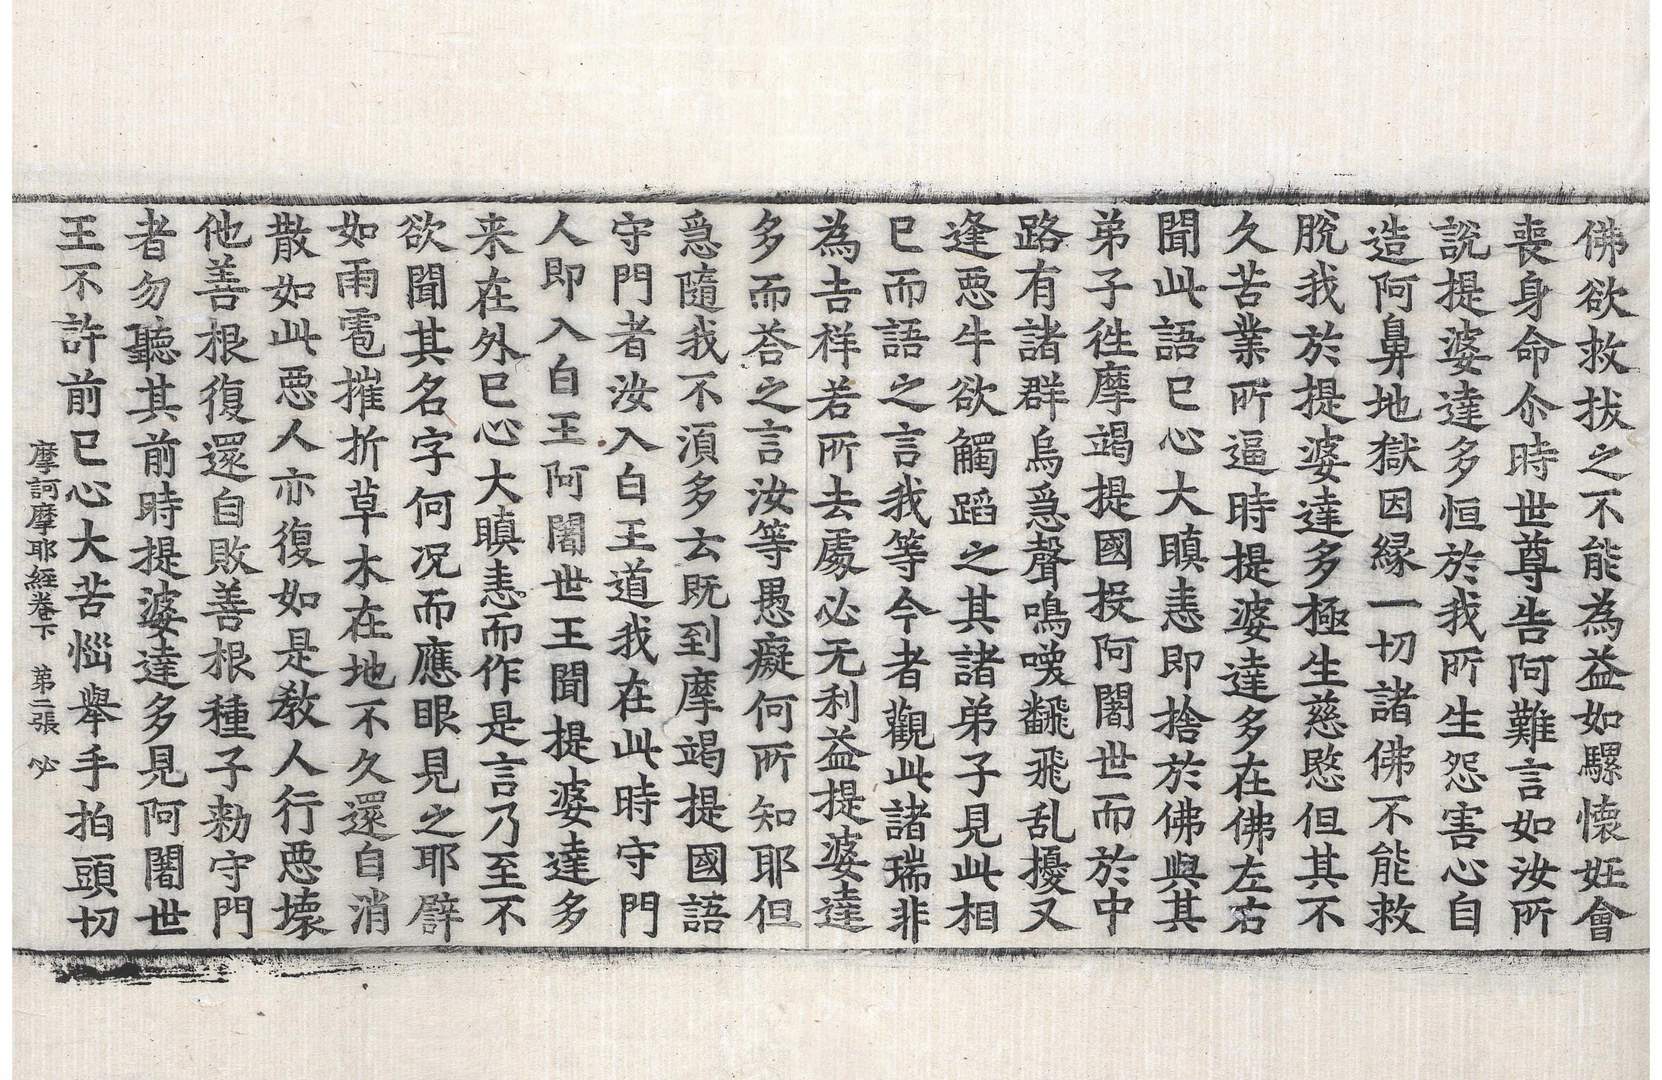 佛欲救拔之不能為益如騾懷妊會
喪身命尒時世尊告阿難言如汝所
說提婆達多恒於我所生怨害心自
造阿鼻地獄因緣一切諸佛不能救
脫我於提婆達多極生慈愍但其不
久苦業所逼時提婆達多在佛左右
聞此語已心大瞋恚即捨於佛與其
弟子徃摩竭提國投阿闍世而於中
路有諸群烏爲聲鳴喚翻飛乱擾又
逢惡牛欲觸蹈之其諸弟子見此相
已而語之言我等今者觀此諸瑞非
為吉祥若所去處必无利益提婆達
多而荅之言汝等愚癡何所知耶但
爲隨我不湏多云既到摩竭提國語
守門者汝入白王道我在此時守門
人即入白王阿闍世王聞提婆達多
来在外已心大瞋恚而作是言乃至不
欲聞其名字何况而應眼見之耶譬
如雨雹摧折草木在地不久還自消
散如此惡人亦復如是教人行惡壞
他善根復還自敗善根種子勑守門
者勿聽其前時提婆達多見阿闍世
王不許前已心大苦惱舉手拍頭切
摩訶摩耶經卷下 第二張 必